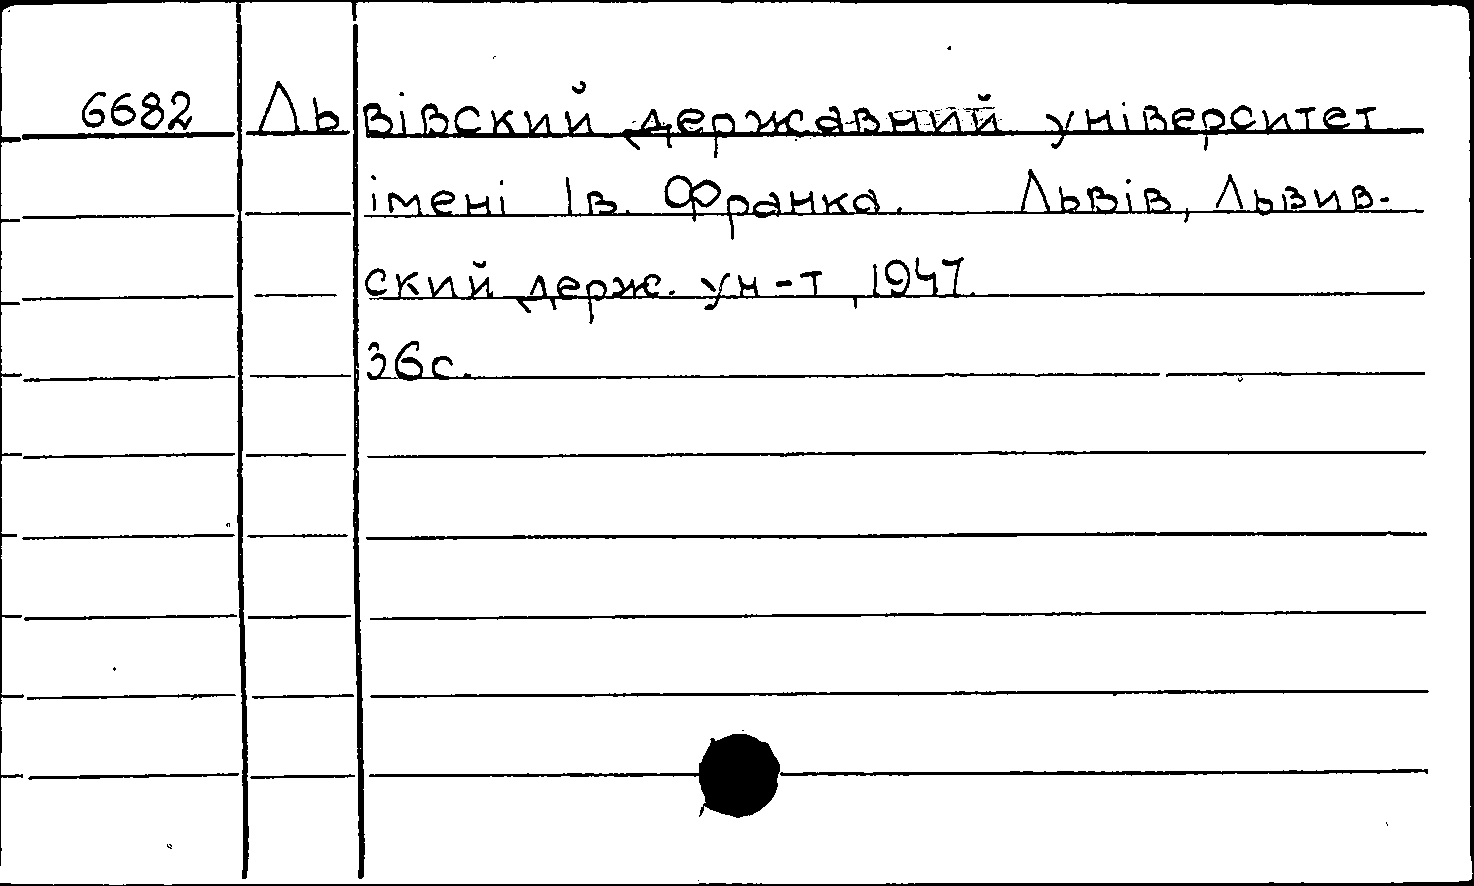 6682 Львівский державний університет
імені Ів. Франка. Львів, Львив-
ский держ. ун-т, 1947.
36с.